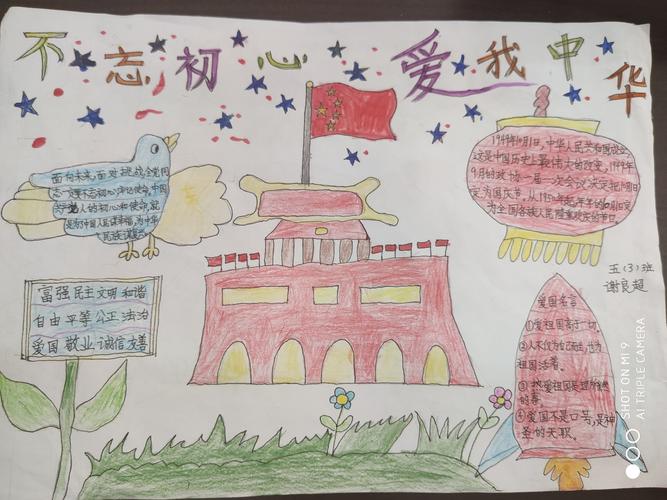 不忘初心 爱我中华
面向未来,面对挑战,全党同
志一定要不忘初心,牢记使命,中国
共产党人的初心和使命,就
是为中国人民谋幸福,为中华
民族谋复兴
1949年10月1日,中华人民共和国成立,
这是中国历史上最伟大的改变,1949年
9月的政协一届一次会议决定把10月1日
定为国庆节,从1950年起每年的10月1日定
为全国各族人民隆重欢庆的节日。
五(3)班
谢良超
富强 民主 文明 和谐
自由 平等 公正 法治
爱国 敬业 诚信 友善
爱国名言
①爱祖国高于一切。
②人不仅为自己而生,也为
祖国活着。
③热爱祖国是
④爱国不是口号,是神
圣的天职。
SHOT ON MI 9
AI TRIPLE CAMERA